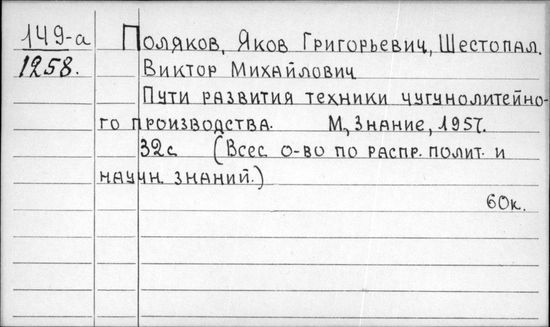 149-а
1258.
Поляков, Яков Григорьевич, Шестопал.
Виктор Михайлович
Пути развития техники чугунолитейно-
го производства. М, Знание, 1957.
32с (Всес. о-во по распр. полит. и
научн. знаний.)
60к.